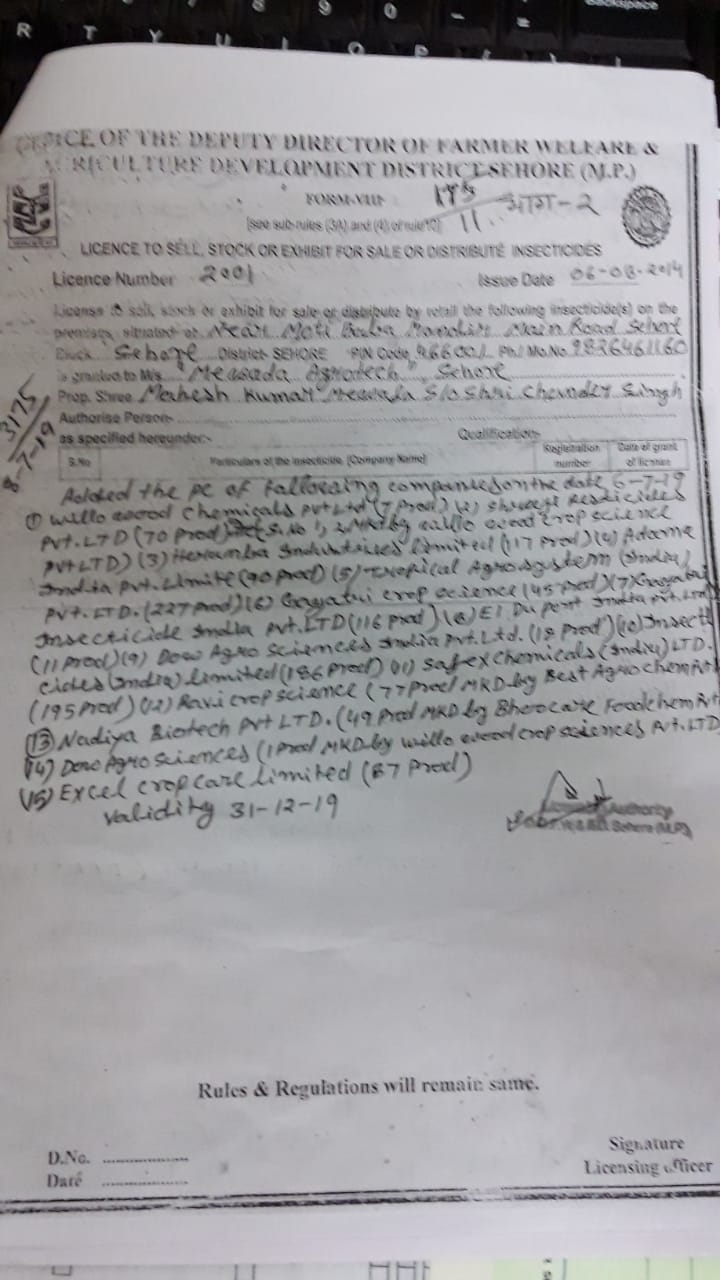 OFFICE OF THE DEPUTY DIRECTOR OF FARMER WELFARE &
AGRICULTURE DEVELOPMENT DISTRICT-SEHORE (M.P.)
FORM-VIII
[see sub-rules (3A) and (4) of rule10]
11.
-2
LICENCE TO SELL, STOCK OR EXHIBIT FOR SALE OR DISTRIBUTE INSECTICIDES
Licence Number 2001 Issue Date 06-08-2014
License to sell, stock or exhibit for sale or distribute by retail the following insecticide(s) on the
premises situated at Near Moti Baba Mandir Main Road Sehore
Block Sehore District- SEHORE PIN Code 466001 Ph./ Mo.No. 9826461160
is granted to M/s. "Mewada Agrotech", Sehore
Prop. Shree Mahesh Kumar Mewada S/o Shri Chander Singh
Authorise Person-
as specified hereunder:- Qualification-
3175
8-7-19
S.No Particulars of the insecticide. [Company Name] Registration number Date of grant of license
Added the pc of Following companies on the date 6-7-19
① willo wood chemicals pvt Ltd (7 Prod) (2) Pesticides
Pvt. LTD (70 Prod) S.No 1, 2 MKD by willo wood crop science
Pvt LTD) (3) Heramba Industries Limited (117 Prod) (4) Adama
India Pvt. Limite (90 Prod) (5) Tropical Agrosystem (India)
Pvt. LTD. (227 Prod) (6) Gayatri crop science (45 Prod) (7)
Insecticide India Pvt. LTD (116 Prod) (8) EI Du pont India Pvt. Ltd
(11 Prod) (9) Dow Agro Sciences India Pvt. Ltd. (18 Prod) (10) Insecti
cides (India) Limited (186 Prod) (11) Safex Chemicals (India) LTD.
(195 Prod) (12) Ravi crop science (77 Prod MKD by Best Agrochem Pvt
(13) Nadiya Biotech Pvt LTD. (49 Prod MKD by Foodchem Pvt
14) Dow Agro Sciences (1 Prod MKD by willo wood crop sciences Pvt. LTD
(15) Excel crop care Limited (87 Prod)
Validity 31-12-19
Authority
Sehore (M.P.)
Rules & Regulations will remain same.
D.No. ....................
Date ....................
Signature
Licensing officer